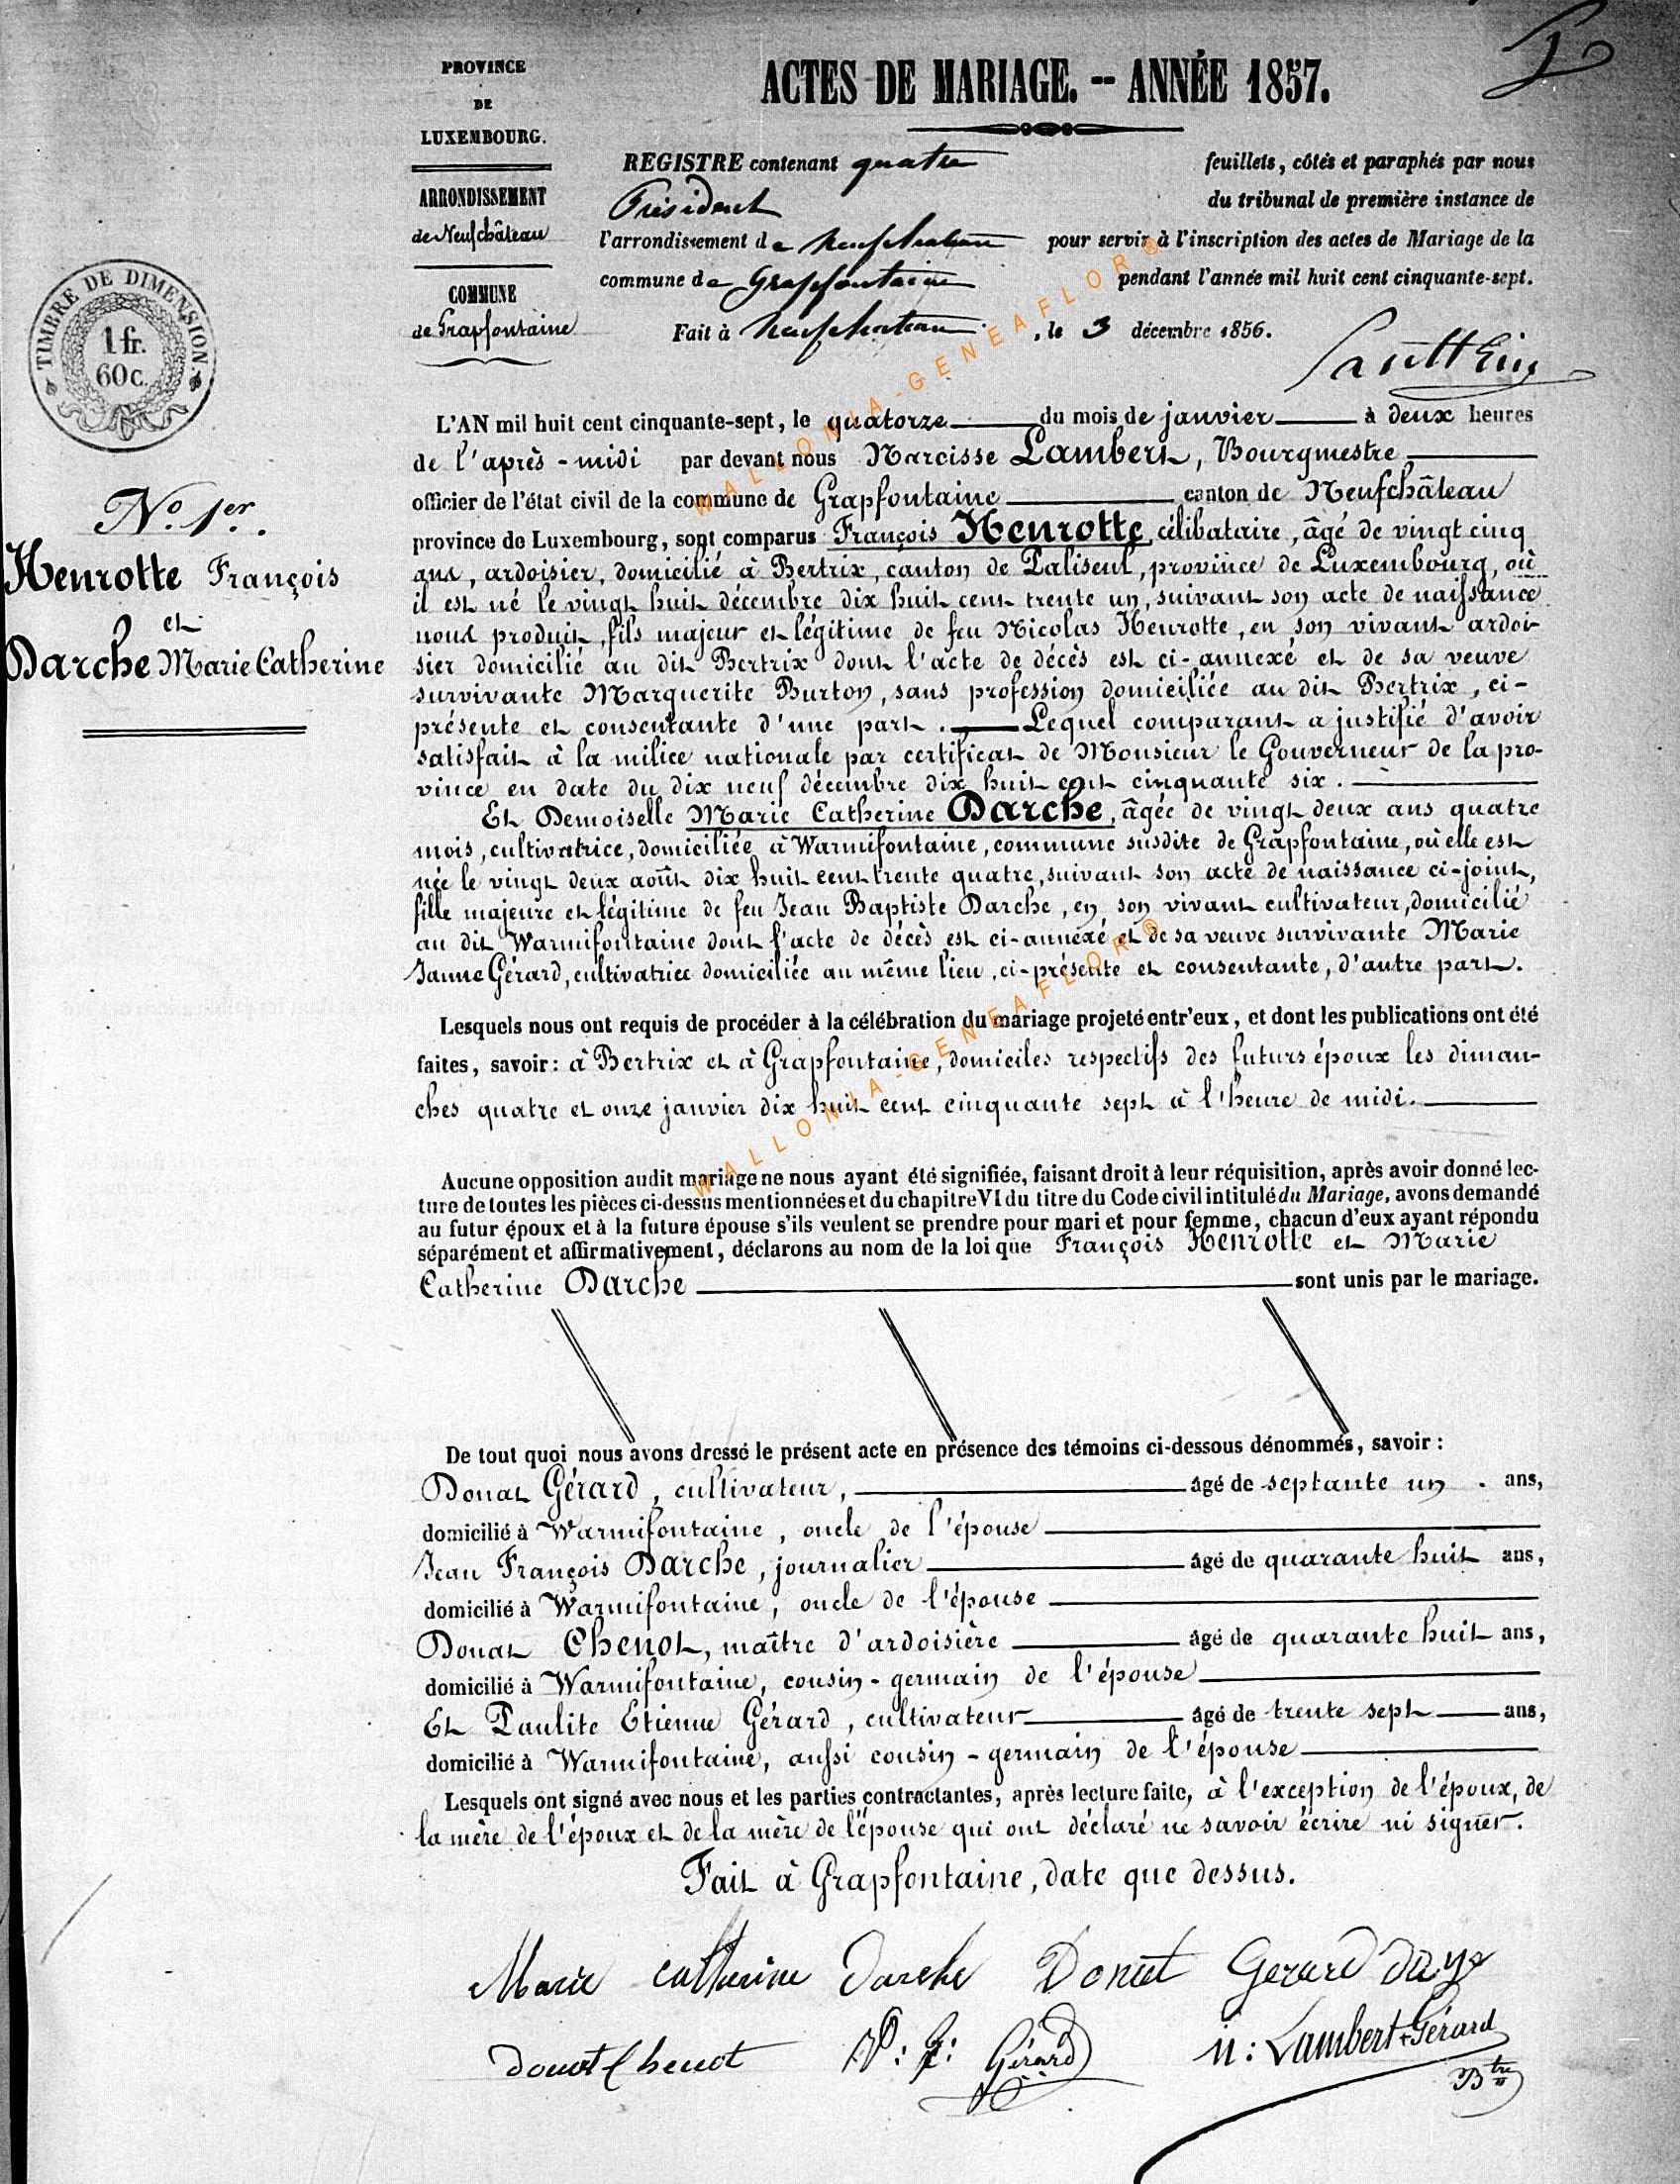 PROVINCE
DE
LUXEMBOURG.
ARRONDISSEMENT
de Neufchâteau
COMMUNE
de Grapfontaine
TIMBRE DE DIMENSION.
1 fr.
60 c.
ACTES DE MARIAGE. -- ANNÉE 1857.
REGISTRE contenant quatre feuillets, côtés et paraphés par nous
Président du tribunal de première instance de
l'arrondissement de Neufchateau pour servir à l'inscription des actes de Mariage de la
commune de Grapfontaine pendant l'année mil huit cent cinquante-sept.
Fait à Neufchateau, le 3 décembre 1856.
N.o 1er.
Henrotte François
et
Darche Marie Catherine
L'AN mil huit cent cinquante-sept, le quatorze du mois de janvier à deux heures
de l'après-midi par devant nous Narcisse Lambert, Bourgmestre
officier de l'état civil de la commune de Grapfontaine canton de Neufchâteau
province de Luxembourg, sont comparus François Henrotte, célibataire, âgé de vingt cinq
ans, ardoisier, domicilié à Bertrix, canton de Paliseul, province de Luxembourg, où
il est né le vingt huit décembre dix huit cent trente un, suivant son acte de naissance
nous produit, fils majeur et légitime de feu Nicolas Henrotte, en son vivant ardoi-
sier domicilié au dit Bertrix dont l'acte de décès est ci-annexé et de sa veuve
survivante Marguerite Burton, sans profession domiciliée au dit Bertrix, ci-
présente et consentante d'une part. Lequel comparant a justifié d'avoir
satisfait à la milice nationale par certificat de Monsieur le Gouverneur de la pro-
vince en date du dix neuf décembre dix huit cent cinquante six.
Et Demoiselle Marie Catherine Darche, âgée de vingt deux ans quatre
mois, cultivatrice, domiciliée à Warmifontaine, commune susdite de Grapfontaine, où elle est
née le vingt deux août dix huit cent trente quatre, suivant son acte de naissance ci-joint,
fille majeure et légitime de feu Jean Baptiste Darche, en son vivant cultivateur, domicilié
au dit Warmifontaine dont l'acte de décès est ci-annexé et de sa veuve survivante Marie
Janne Gérard, cultivatrice domiciliée au même lieu, ci-présente et consentante, d'autre part.
Lesquels nous ont requis de procéder à la célébration du mariage projeté entr'eux, et dont les publications ont été
faites, savoir: à Bertrix et à Grapfontaine, domiciles respectifs des futurs époux les diman-
ches quatre et onze janvier dix huit cent cinquante sept à l'heure de midi.
Aucune opposition audit mariage ne nous ayant été signifiée, faisant droit à leur réquisition, après avoir donné lec-
ture de toutes les pièces ci-dessus mentionnées et du chapitre VI du titre du Code civil intitulé du Mariage, avons demandé
au futur époux et à la future épouse s'ils veulent se prendre pour mari et pour femme, chacun d'eux ayant répondu
séparément et affirmativement, déclarons au nom de la loi que François Henrotte et Marie
Catherine Darche sont unis par le mariage.
De tout quoi nous avons dressé le présent acte en présence des témoins ci-dessous dénommés, savoir:
Donat Gérard, cultivateur, âgé de septante un. ans,
domicilié à Warmifontaine, oncle de l'épouse
Jean François Darche, journalier âgé de quarante huit ans,
domicilié à Warmifontaine, oncle de l'épouse
Donat Chenot, maître d'ardoisière âgé de quarante huit ans,
domicilié à Warmifontaine, cousin-germain de l'épouse
Et Paulite Etienne Gérard, cultivateur âgé de trente sept ans,
domicilié à Warmifontaine, aussi cousin-germain de l'épouse
Lesquels ont signé avec nous et les parties contractantes, après lecture faite, à l'exception de l'époux, de
la mère de l'époux et de la mère de l'épouse qui ont déclaré ne savoir écrire ni signer.
Fait à Grapfontaine, date que dessus.
Marie catherine darche Donat Gerard
donat Chenot P: E: Gérard n: Lambert+Gérard
Btre
WALLONIA-GENEAFLOR®
WALLONIA-GENEAFLOR®